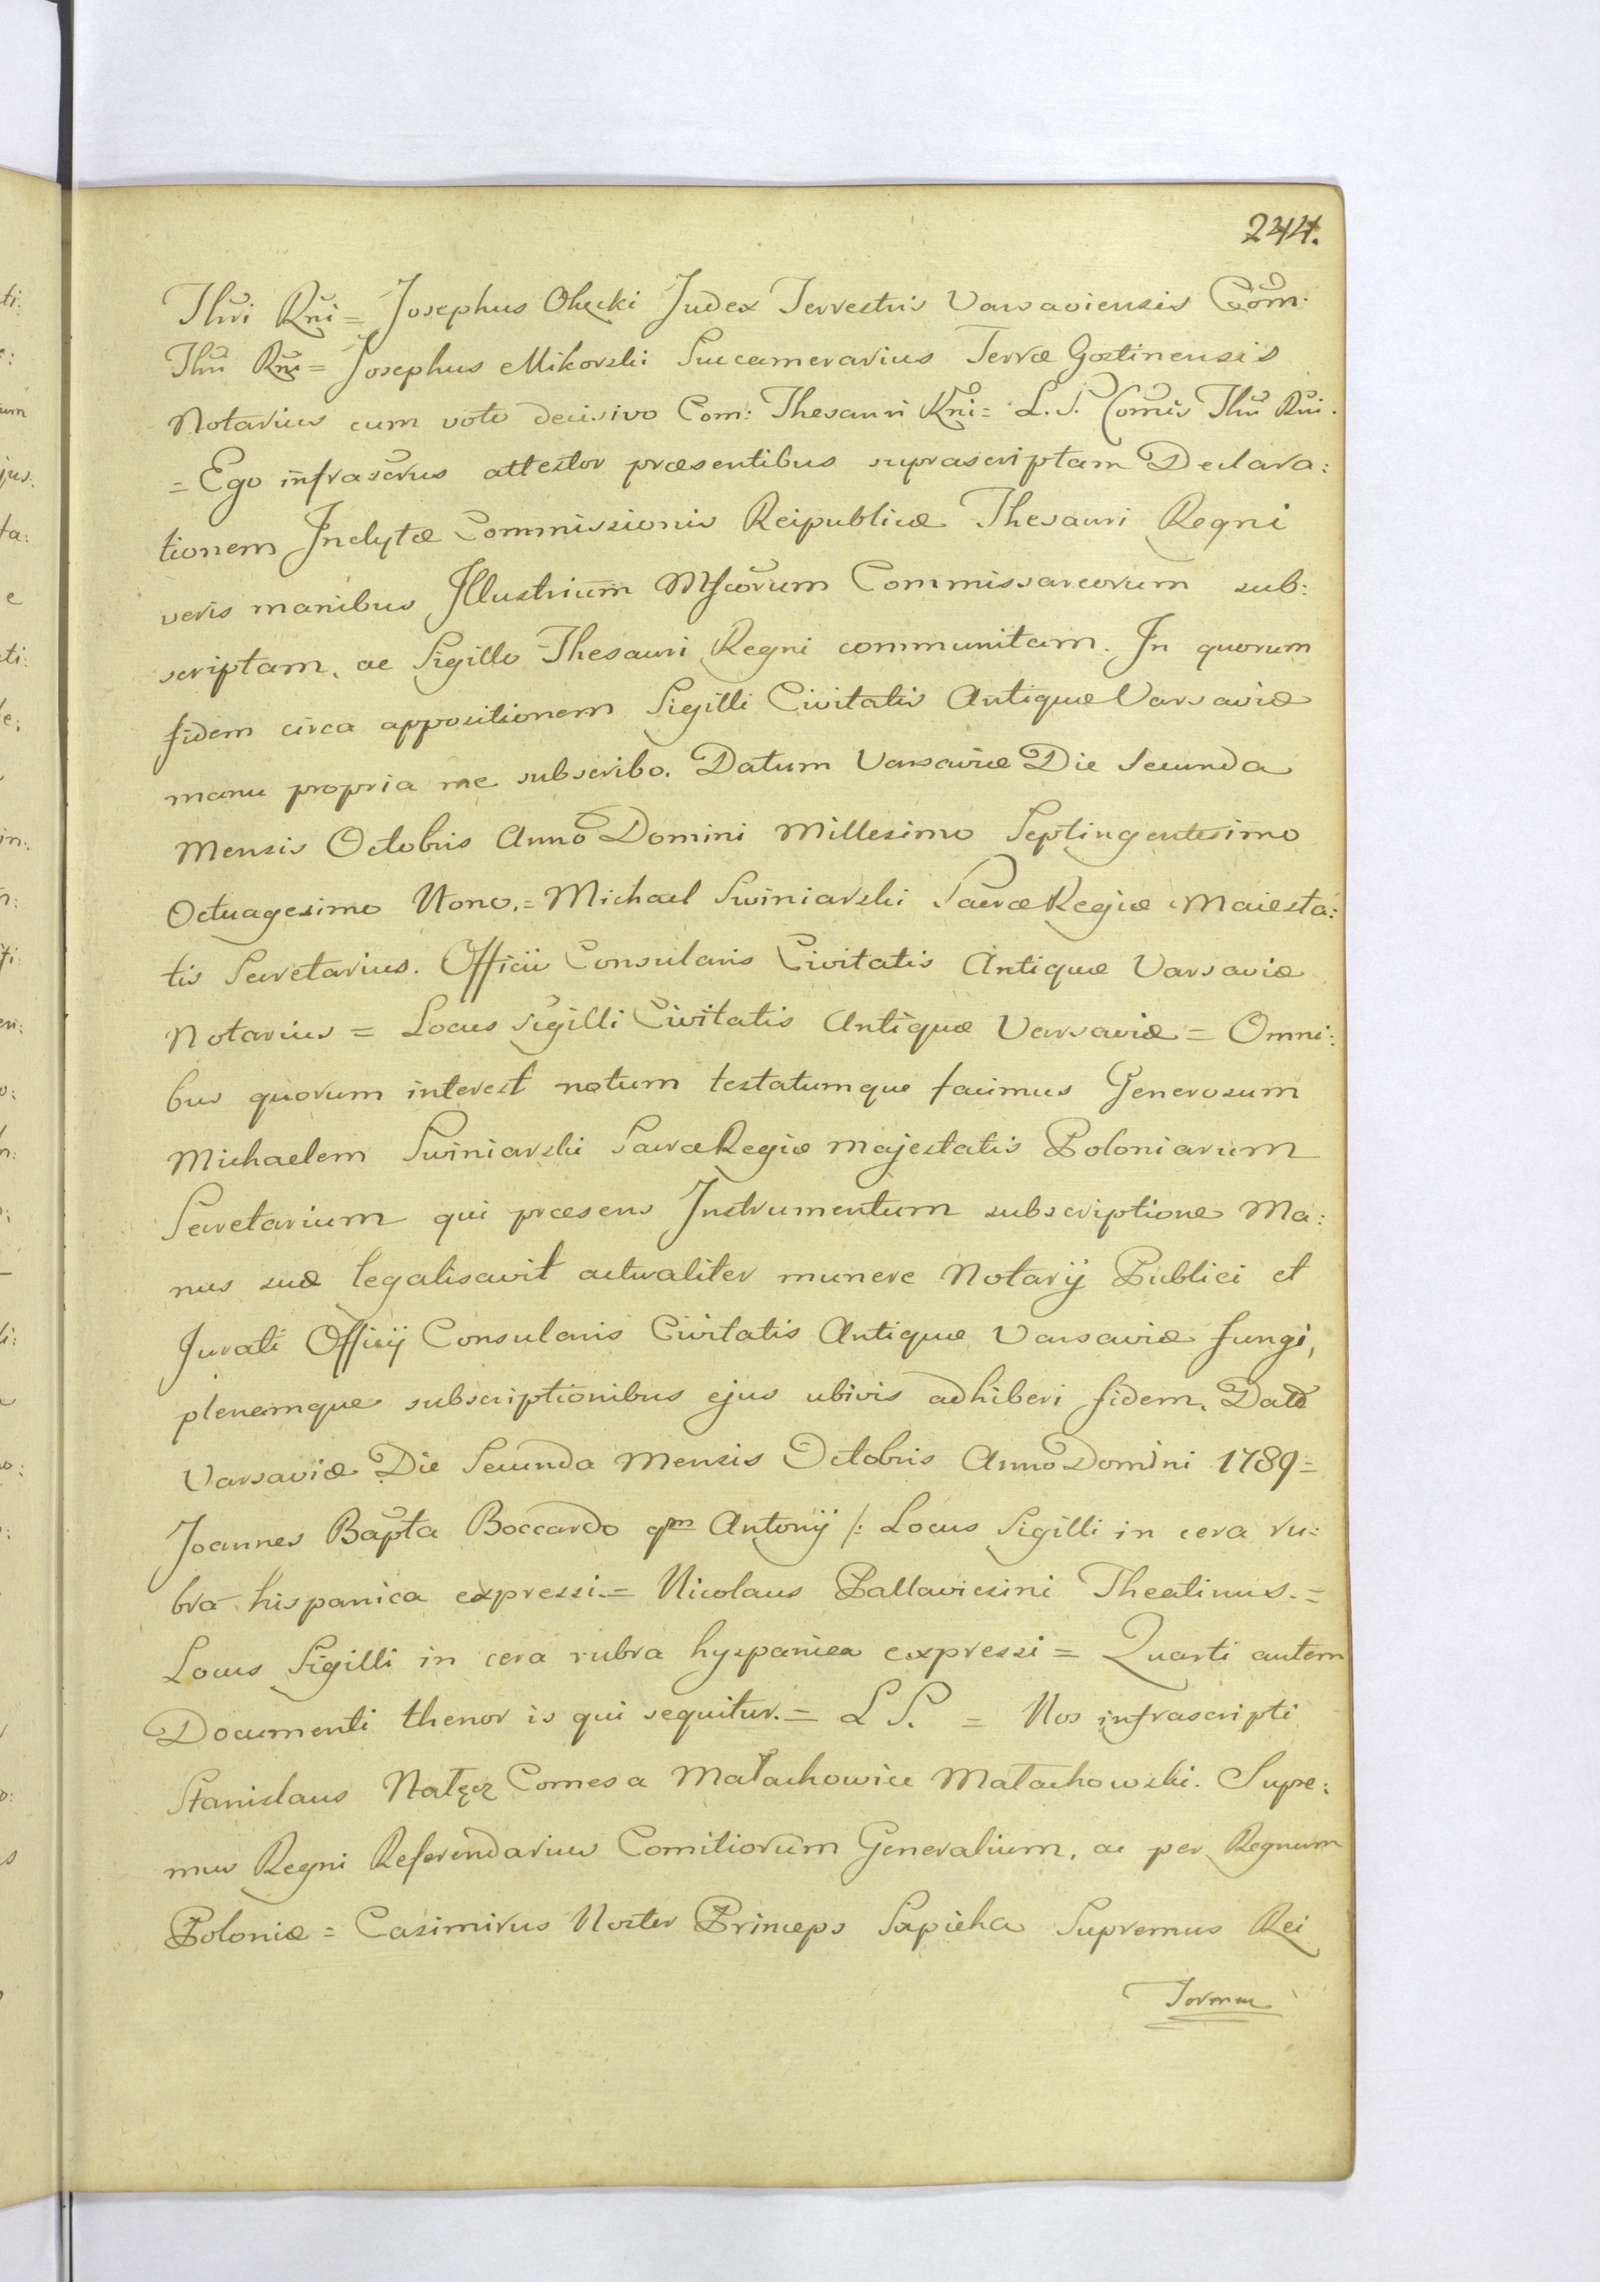 244.
Thri Rni = Josephus Olęcki Judex Terrestris Varsaviensis Com:
Thri Rni = Josephus Mikorski Succamerarius Terræ Gostinensis
Notarius cum voto decisivo Com: Thesauri Rni = L. S. Comis Thri Rni.
= Ego infrascrus attestor præsentibus suprascriptam Declara:
tionem Inclytæ Commissionis Reipublicæ Thesauri Regni
veris manibus Illustrium Mgcorum Commissareorum sub:
scriptam, ac Sigillo Thesauri Regni communitam. In quorum
fidem circa appositionem Sigilli Civitatis Antiquæ Varsaviæ
manu propria me subscribo. Datum Varsaviæ Die Secunda
Mensis Octobris Anno Domini Millesimo Septingentesimo
Octuagesimo Nono. = Michael Swiniarski Sacræ Regiæ Maiesta:
tis Secretarius. Officii Consularis Civitatis Antiquæ Varsaviæ
Notarius = Locus Sigilli Civitatis Antiquæ Varsaviæ = Omni:
bus quorum interest notum testatumque facimus Generosum
Michaelem Swiniarski Sacræ Regiæ Majestatis Poloniarum
Secretarium qui præsens Instrumentum subscriptione Ma:
nus suæ legalisavit actualiter munere Notarij Publici et
Jurati Officij Consularis Civitatis Antiquæ Varsaviæ fungi,
plenamque subscriptionibus ejus ubivis adhiberi fidem. Datæ
Varsaviæ Die Secunda Mensis Octobris Anno Domini 1789 =
Joannes Bapta Boccardo qm Antonij /: Locus Sigilli in cera ru:
bra hispanica expressi. = Nicolaus Pallavicsini Theatinus. =
Locus Sigilli in cera rubra hyspanica expressi = Quarti autem
Documenti thenor is qui sequitur. = L S. = Nos infrascripti
Stanislaus Nałęcz Comes a Małachowice Małachowski. Supre:
mus Regni Referendarius Comitiorum Generalium, ac per Regnum
Poloniæ = Casimirus Noster Princeps Sapieha Supremus Rei